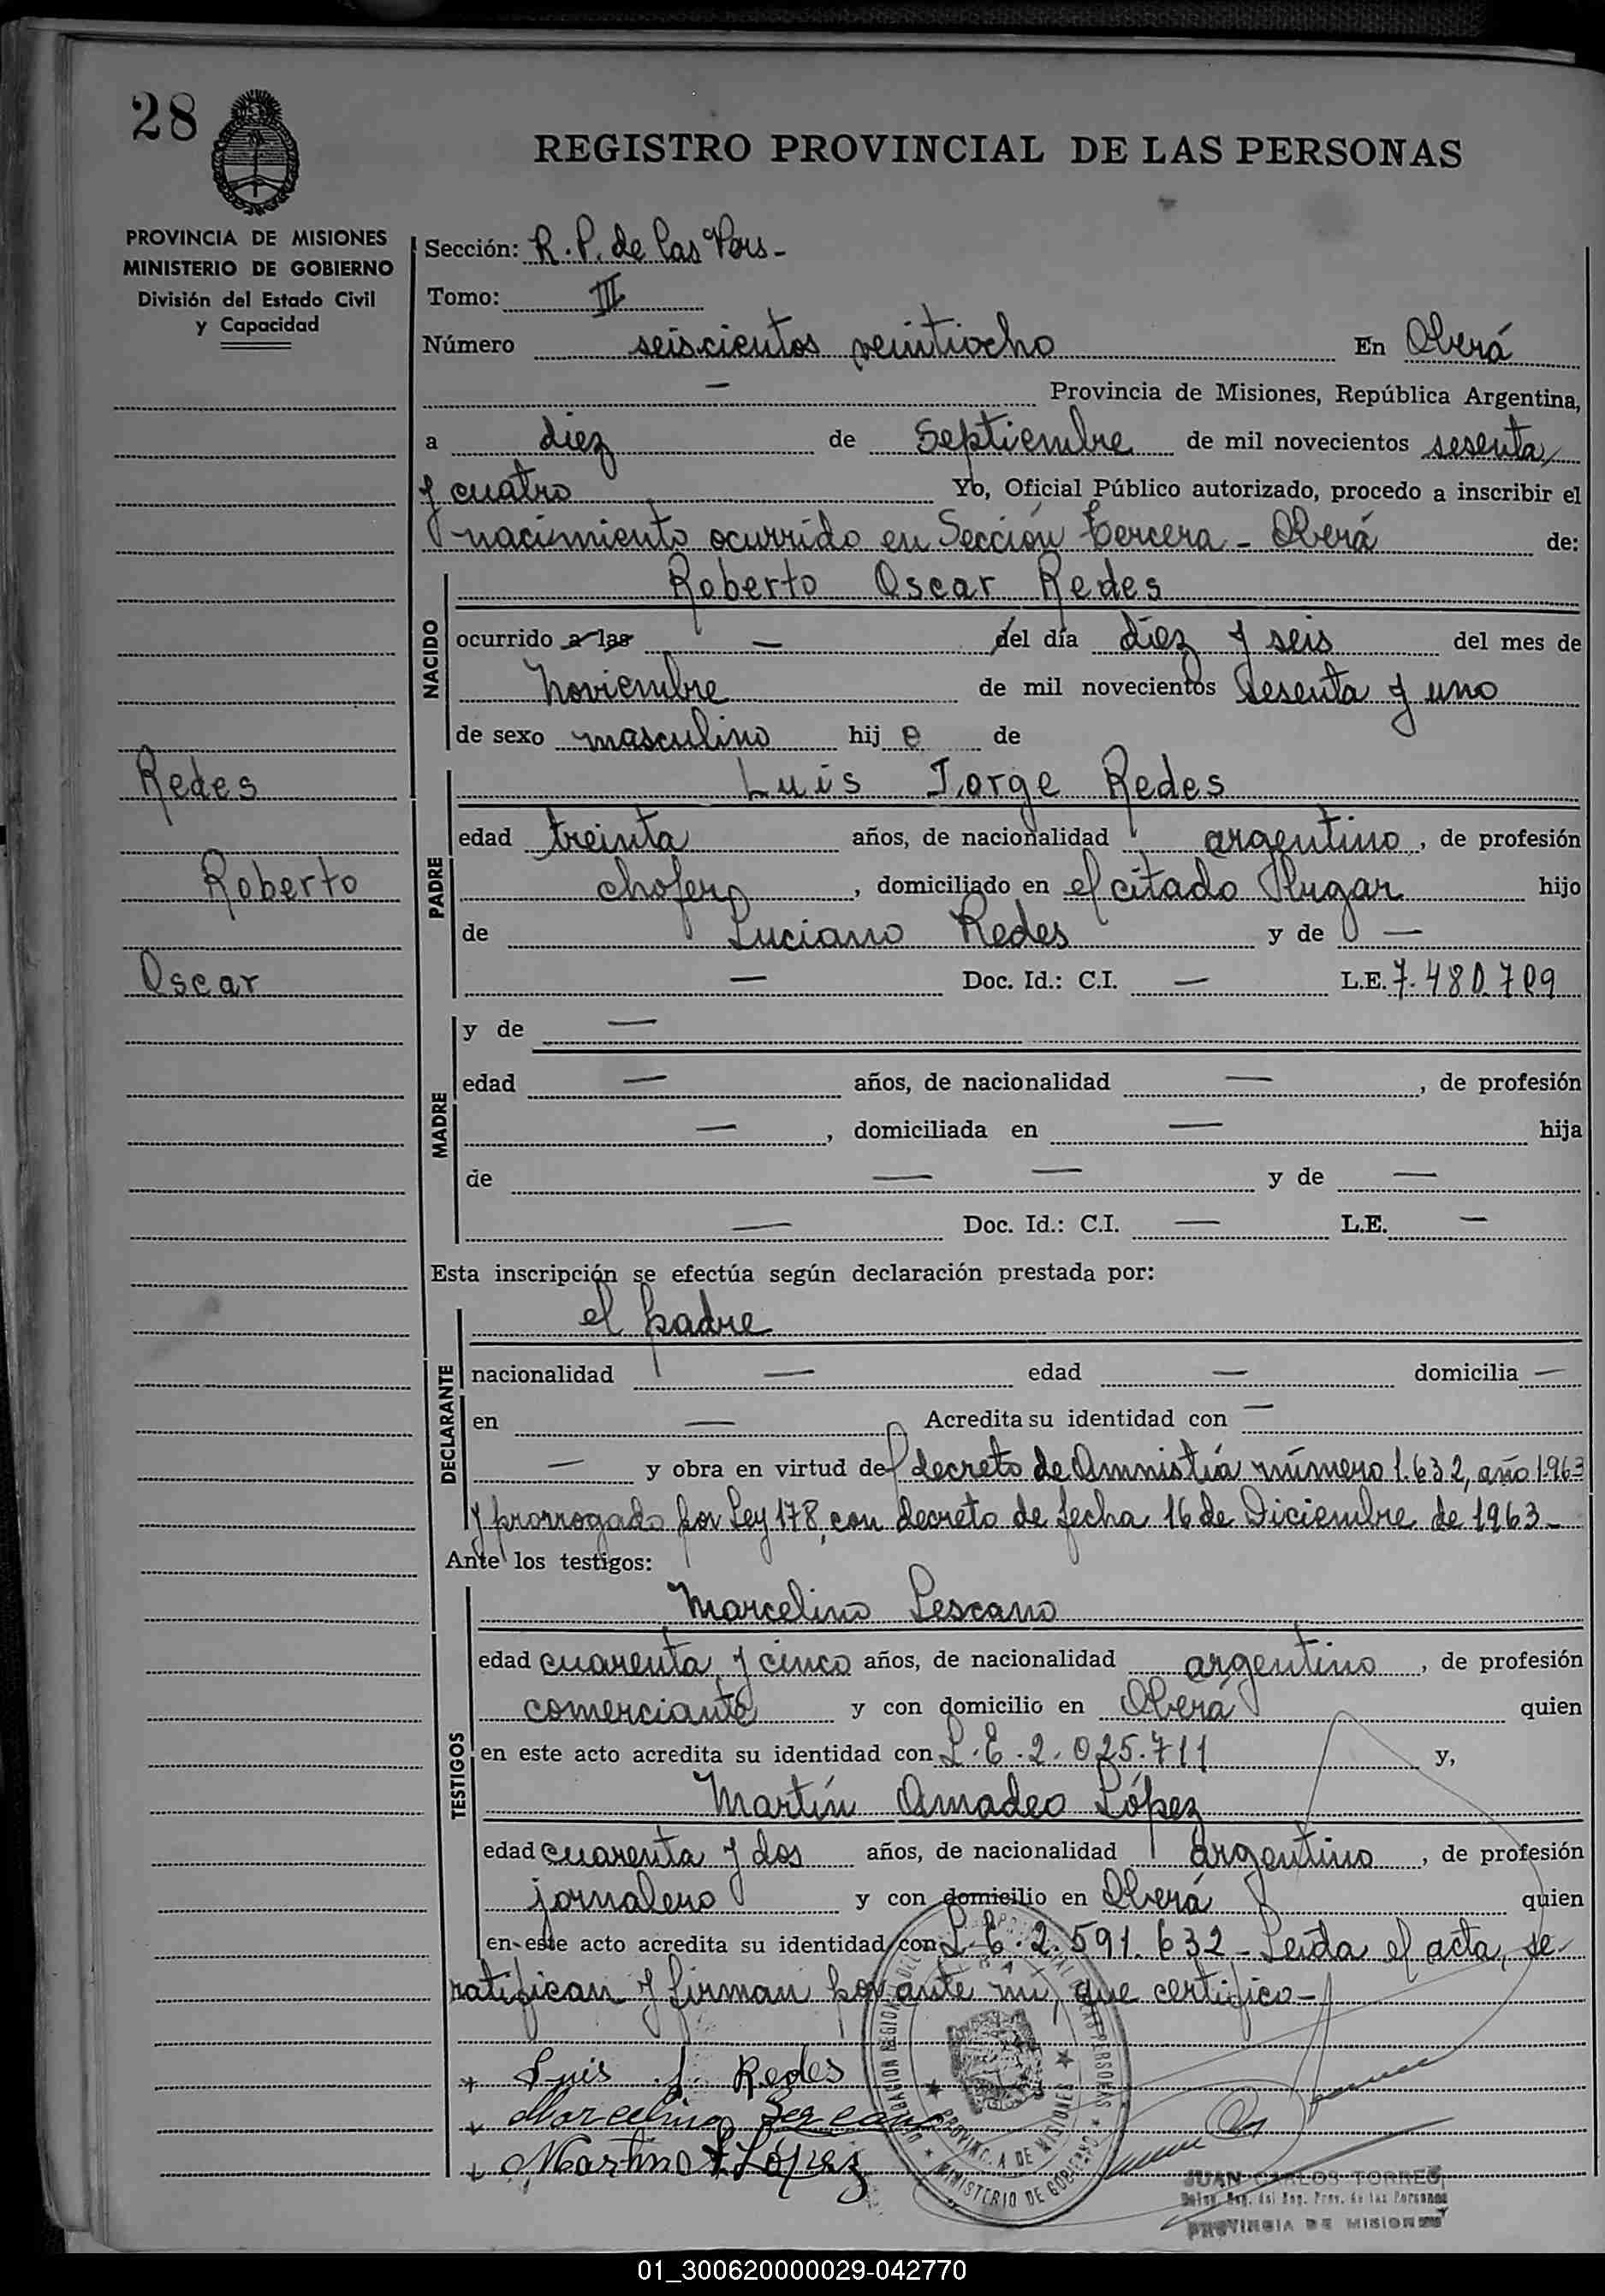 28
REGISTRO PROVINCIAL DE LAS PERSONAS
PROVINCIA DE MISIONES
MINISTERIO DE GOBIERNO
División del Estado Civil
y Capacidad
Sección: R. P. de las Pers -
Tomo: III
Número seiscientos veintiocho En Oberá
— Provincia de Misiones, República Argentina,
a diez de Septiembre de mil novecientos sesenta
y cuatro Yo, Oficial Público autorizado, procedo a inscribir el
nacimiento ocurrido en Sección tercera - Oberá de:
NACIDO
Roberto Oscar Redes
ocurrido a las — del día diez y seis del mes de
Noviembre de mil novecientos sesenta y uno
de sexo masculino hij o de
Redes
Roberto
Oscar
PADRE
Luis Jorge Redes
edad treinta años, de nacionalidad argentino, de profesión
chofer, domiciliado en el citado lugar hijo
de Luciano Redes y de —
— Doc. Id.: C.I. — L.E. 7.480.709
MADRE
y de —
edad — años, de nacionalidad —, de profesión
—, domiciliada en — hija
de — — y de —
— Doc. Id.: C.I. — L.E. —
Esta inscripción se efectúa según declaración prestada por:
DECLARANTE
el padre
nacionalidad — edad — domicilia —
en — Acredita su identidad con —
— y obra en virtud del decreto de Amnistía número 1.632, año 1963
y prorrogado por Ley 178, con decreto de fecha 16 de Diciembre de 1963 -
Ante los testigos:
TESTIGOS
Marcelino Lescano
edad cuarenta y cinco años, de nacionalidad argentino, de profesión
comerciante y con domicilio en Oberá quien
en este acto acredita su identidad con L.E. 2.025.711 y,
Martín Amadeo López
edad cuarenta y dos años, de nacionalidad argentino, de profesión
jornalero y con domicilio en Oberá quien
en este acto acredita su identidad con L.E. 2.591.632 - Leída el acta, se
ratifican y firman por ante mí, que certifico -
+ Luis J. Redes
+ Marcelino Lescano
+ Martino A López
PROVINCIA DE MISIONES
MINISTERIO DE GOBIERNO
JUAN CARLOS TORRES
Deleg. Reg. del Reg. Prov. de las Personas
PROVINCIA DE MISIONES
01_300620000029-042770